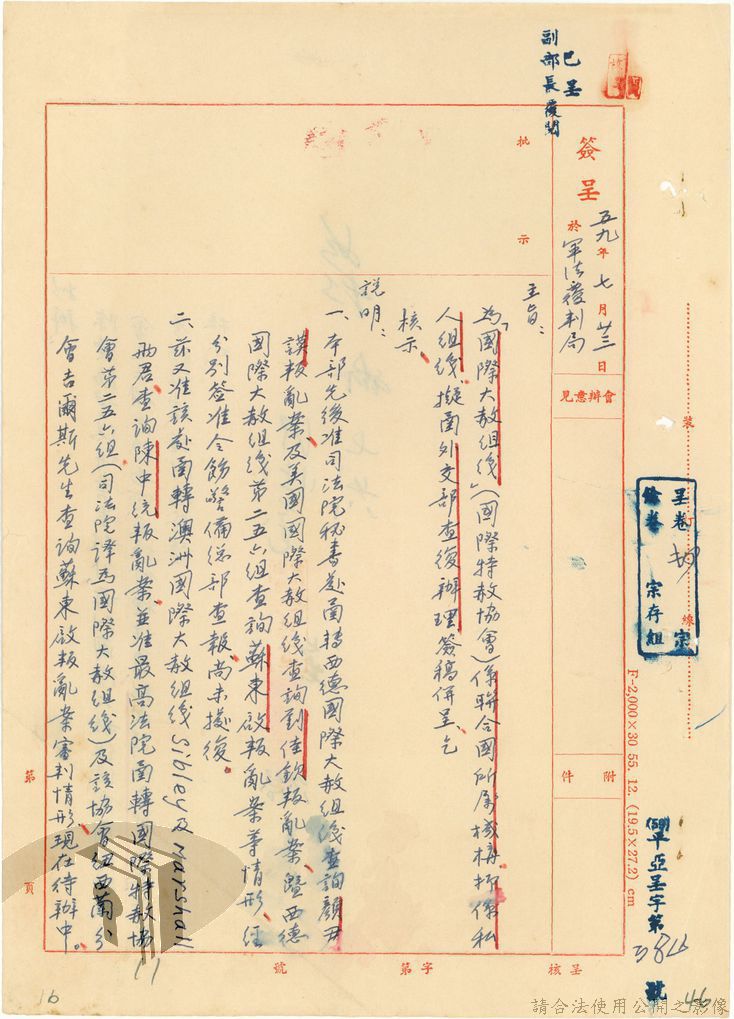 已呈
副部長覆閱
簽呈
五九年七月廿三日
於軍法覆判局
批示
會辦意見
附件
主旨：
為「國際大赦組織」（國際特赦協會）係聯合國所屬機構抑係私
人組織，擬函外交部查復辦理，簽稿併呈，乞
核示。
說明：
一、本部先後准司法院秘書處函轉西德國際大赦組織查詢顏尹
謨叛亂案及美國國際大赦組織查詢劉佳欽叛亂案，暨西德
國際大赦組織第二五六組查詢蘇東啟叛亂案等情形，經
分別簽准令飭警備總部查報，尚未據復。
二、茲又准該處函轉澳洲國際大赦組織Sibley及Marshall
兩君查詢陳中統叛亂案，並准最高法院函轉國際特赦協
會第二五六組（司法院譯為國際大赦組織）及該協會紐西蘭分
會吉爾斯先生查詢蘇東啟叛亂案審判情形，現在待辦中。
第 頁
呈核 字第 號
裝 訂 線
呈卷
餘卷 宗存組
宗
F-2,000×30 55. 12. (19.5×27.2) cm
(59)平亞呈字第 號
46
16
請合法使用公開之影像